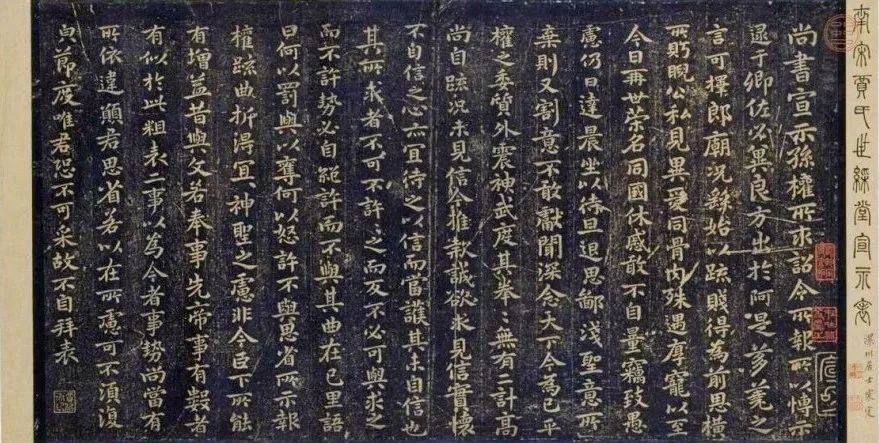 南宋賈氏世綵堂宣示表
尚書宣示孫權所求詔令所報所以博示
逮于卿佐必冀良方出於阿是芻蕘之
言可擇郎廟況繇始以疏賤得為前思橫
所眄睨公私見異愛同骨肉殊遇厚寵以至
今日再世榮名同國休慼敢不自量竊致愚
慮仍日達晨坐以待旦退思鄙淺聖意所
棄則又割意不敢獻聞深念天下今為已平
權之委質外震神武度其拳〻無有二計高
尚自疏況未見信今推款誠欲求見信實懷
不自信之心亦宜待之以信而當護其未自信也
其所求者不可不許〻之而反不必可與求之
而不許勢必自絕許而不與其曲在己里語
曰何以罰與以奪何以怒許不與思省所示報
權疏曲折得宜神聖之慮非今臣下所能
有增益昔與文若奉事先帝事有數者
有似於此粗表二事以為今者事勢尚當有
所依違願君思省若以在所慮可不須復
皃節度唯君恐不可采故不自拜表